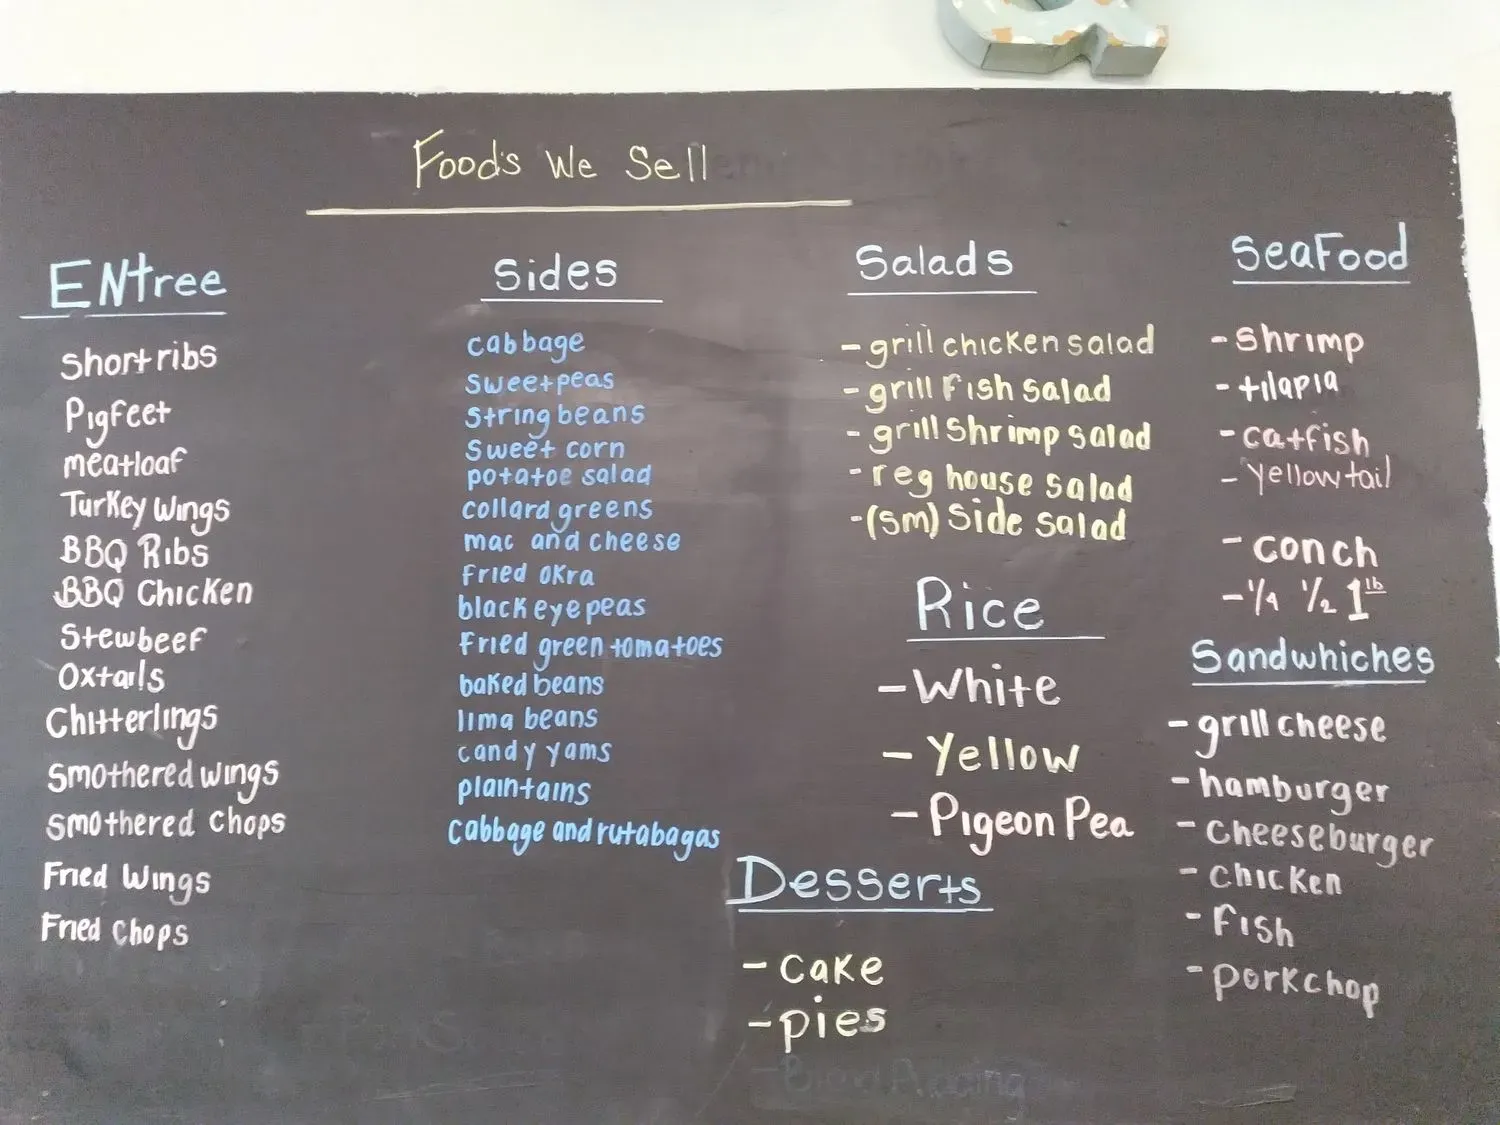 Food's We Sell
ENtree
Short ribs
Pigfeet
meatloaf
Turkey Wings
BBQ Ribs
BBQ Chicken
Stewbeef
Oxtails
Chitterlings
Smothered wings
Smothered chops
Fried Wings
Fried chops
Sides
cabbage
sweetpeas
string beans
Sweet corn
potatoe salad
collard greens
mac and cheese
Fried Okra
blackeyepeas
Fried green tomatoes
baked beans
lima beans
candy yams
plaintains
cabbage and rutabagas
Salads
- grill chicken salad
- grill fish salad
- grill shrimp salad
- reg house salad
- (sm) side salad
Rice
- White
- Yellow
- Pigeon Pea
Desserts
- cake
- pies
SeaFood
- shrimp
- tilapia
- catfish
- yellowtail
- conch
- 1/4 1/2 1 lb
Sandwhiches
- grill cheese
- hamburger
- cheeseburger
- chicken
- Fish
- porkchop